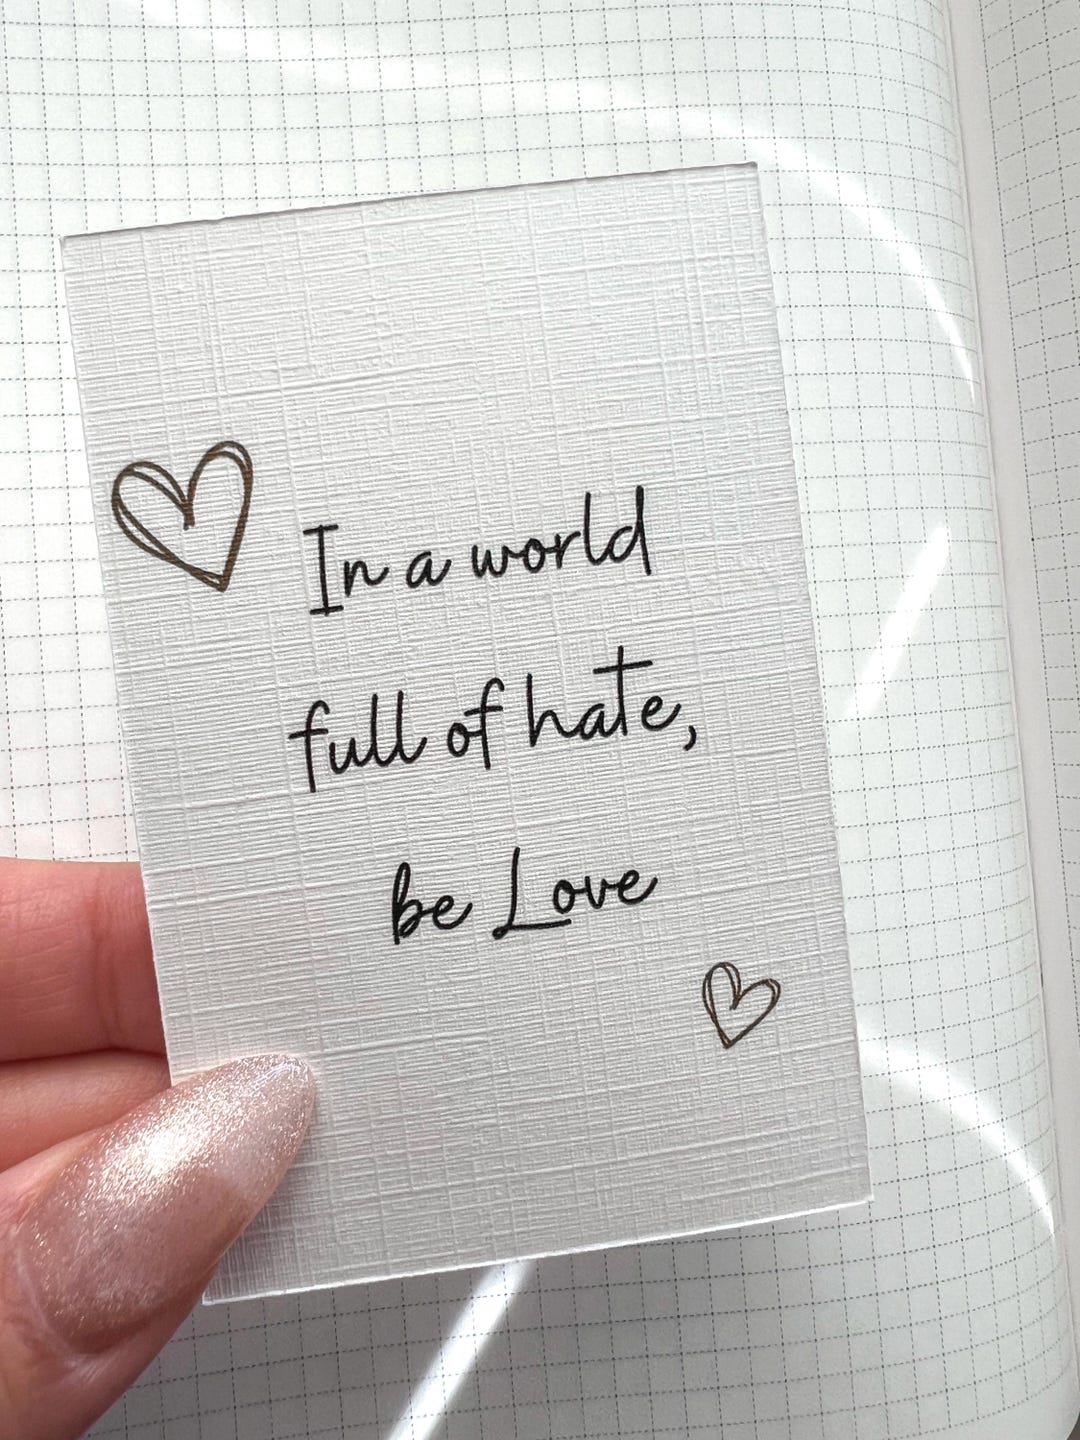 In a world
full of hate,
be Love